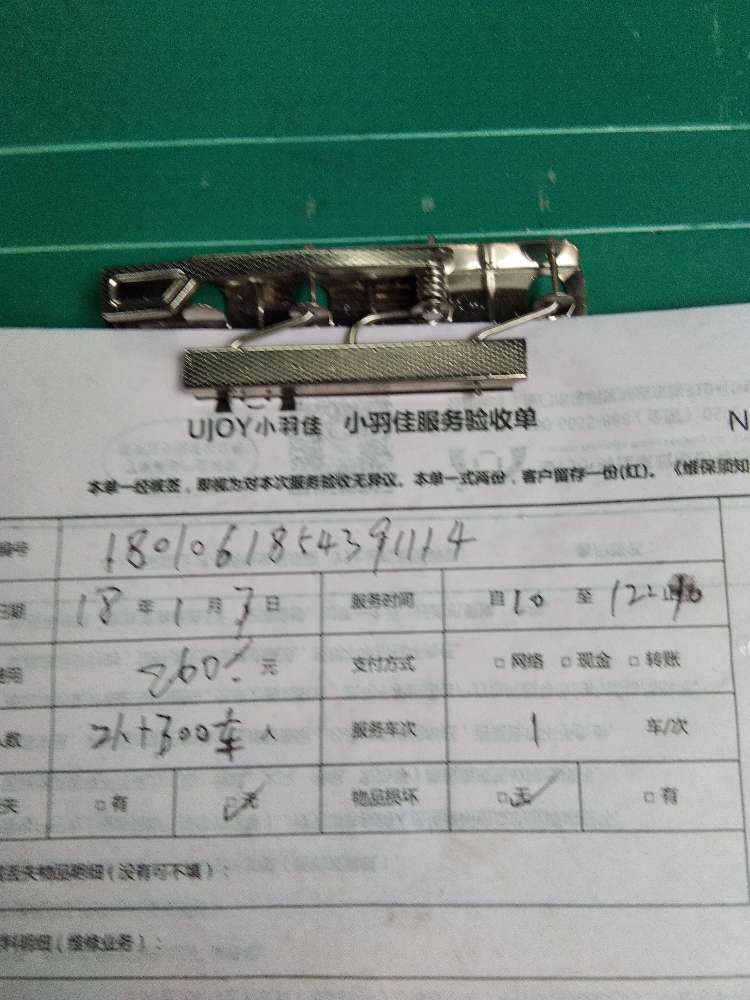 UJOY小羽佳 小羽佳服务验收单 N
本单一经核签，即视为对本次服务验收无异议。本单一式两份，客户留存一份(红)。《维保须知
编号 1801061854391114
日期 18年1月7日 服务时间 自10 至12
费用 260 元 支付方式 □网络 □现金 □转账
人数 2人+300车 人 服务车次 1 车/次
失 □有 □无 物品损坏 □无 □有
丢失物品明细（没有可不填）：
料明细（维修业务）：